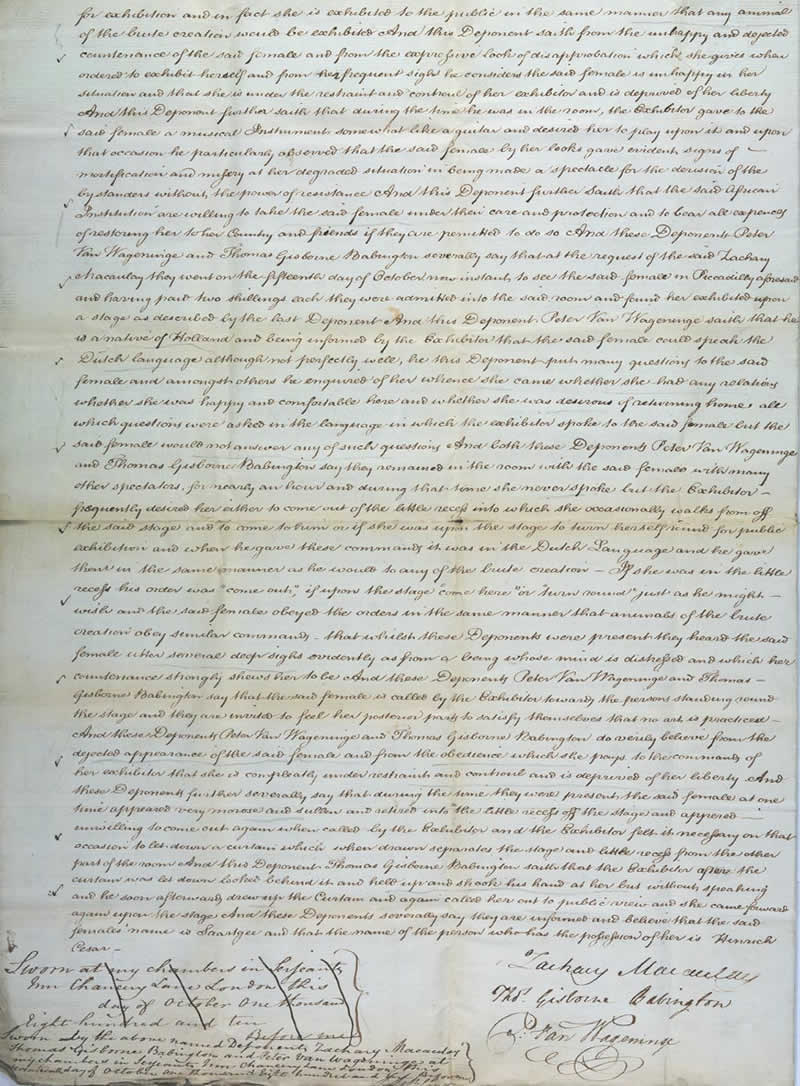 for exhibition and in fact she is exhibited to the public in the same manner that any animal
of the brute creation would be exhibited And this Deponent saith from the unhappy and dejected
countenance of the said female and from the expressive look of disapprobation which she gives when
ordered to exhibit herself and from her frequent sighs he considers the said female is unhappy in her
situation and that she is under the restraint and controul of her exhibitor and is deprived of her liberty
And this Deponent further saith that during the time he was in the room, the Exhibitor gave to the
said female a musical Instrument somewhat like a guitar and desired her to play upon it and upon
that occasion he particularly observed that the said female by her looks gave evident signs of —
mortification and misery at her degraded situation in being made a spectacle for the derision of the
bystanders without the power of resistance And this Deponent further saith that the said African
Institution are willing to take the said female under their care and protection and to bear all expences
of restoring her to her Country and friends if they are permitted to do so And these Deponents Peter
Van Wageninge and Thomas Gisborne Babington severally say that at the request of the said Zachary
Macaulay they went on the fifteenth day of October now instant, to see the said female in Piccadilly aforesaid
and having paid two shillings each they were admitted into the said room and found her exhibited upon
a stage as described by the last Deponent And this Deponent Peter Van Wageninge saith that he
is a native of Holland and being informed by the Exhibitor that the said female could speak the
Dutch language although not perfectly well, he this Deponent put many questions to the said
female and amongst others he enquired of her whence she came whether she had any relations
whether she was happy and comfortable here and whether she was desirous of returning home, all
which questions were asked in the language in which the exhibitor spoke to the said female but the
said female would not answer any of such questions And both these Deponents Peter Van Wageninge
and Thomas Gisborne Babington say they remained in the room with the said female with many
other spectators, for nearly an hour and during that time she never spoke but the Exhibitor —
frequently desired her either to come out of the little recess into which she occasionally walks from off
the said stage and to come to him or if she was upon the stage to turn herself round for public
exhibition and when he gave these commands it was in the Dutch Language and he gave
them in the same manner as he would to any of the brute creation — If she was in the little
recess his order was "come out", if upon the stage "come here" or "turn round" just as he might —
wish and the said female obeyed the orders in the same manner that animals of the brute
creation obey similar commands — that whilst these Deponents were present they heard the said
female utter several deep sighs evidently as from a being whose mind is distressed and which her
countenance strongly shews her to be And these Deponents Peter Van Wageninge and Thomas —
Gisborne Babington say that the said female is called by the Exhibitor towards the persons standing round
the stage and they are invited to feel her posterior parts to satisfy themselves that no art is practiced —
And these Deponents Peter Van Wageninge and Thomas Gisborne Babington do verily believe from the
dejected appearance of the said female and from the obedience which she pays to the commands of
her exhibitor that she is compleatly under restraint and controul and is deprived of her liberty And
these Deponents further severally say that during the time they were present, the said female at one
time appeared very morose and sullen and retired into the little recess off the stage and appeared —
unwilling to come out again when called by the Exhibitor and the Exhibitor felt it necessary on that
occasion to let down a curtain which when drawn separates the stage and little recess from the other
part of the room And this Deponent Thomas Gisborne Babington saith that the Exhibitor after the
curtain was let down looked behind it and held up and shook his hand at her but without speaking
and he soon afterwards drew up the Curtain and again called her out to public view and she came forward
again upon the stage And these Deponents severally say they are informed and believe that the said
females name is Saartgee and that the name of the person who has the possession of her is Hinrich
Cesar —
Sworn at my chambers in Serjeants
Inn Chancery Lane London this
day of October One thousand
Eight hundred and ten
Before me
Sworn by the above named Deponents Zachary Macaulay
Thomas Gisborne Babington and Peter Van Wageninge at
my chambers in Serjeants Inn Chancery Lane London this
day of October One thousand Eight hundred and ten Before
Zachary Macaulay
Thos. Gisborne Babington
P. Van Wageninge